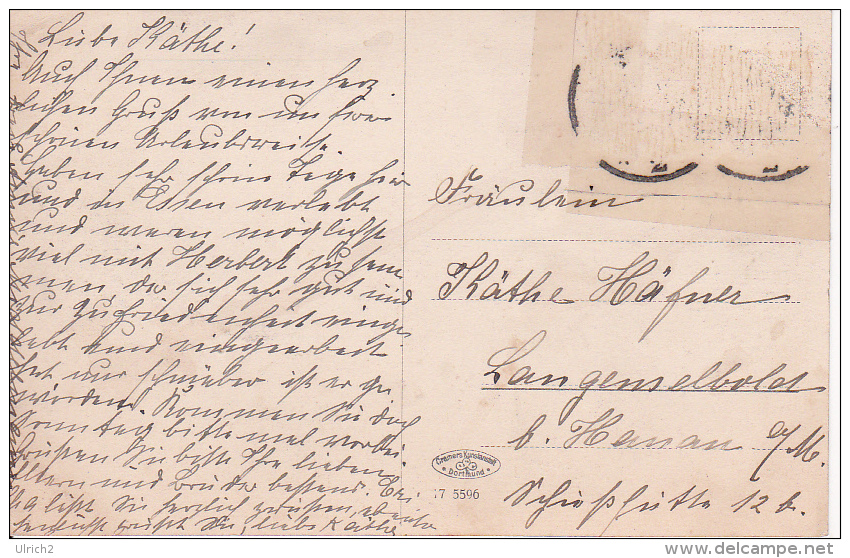 Liebe Käthe!
Auch Ihnen einen herz
lichen Gruß von unserer
schönen Urlaubsreise.
Haben sehr schöne Tage hier
und in Essen verlebt
und waren möglichst
viel mit Herbert zusam
men, der sich sehr gut und
zur Zufriedenheit einge
lebt und eingearbeitet
hat nur schmäler ist er ge
worden. Kommen Sie doch
Sonntag bitte mal vorbei.
Grüßen Sie bitte Ihre lieben
Eltern und Bruder bestend.
läßt Sie herzlich grüßen, ebenso
grüßt Sie, liebe Käthe
Fräulein
Käthe Häfner
Langenselbold
b. Hanau a/M.
Schießhütte 12 b.
Cramers Kunstanstalt
Dortmund
17 5596
Ulrich2
www.delcampe.net